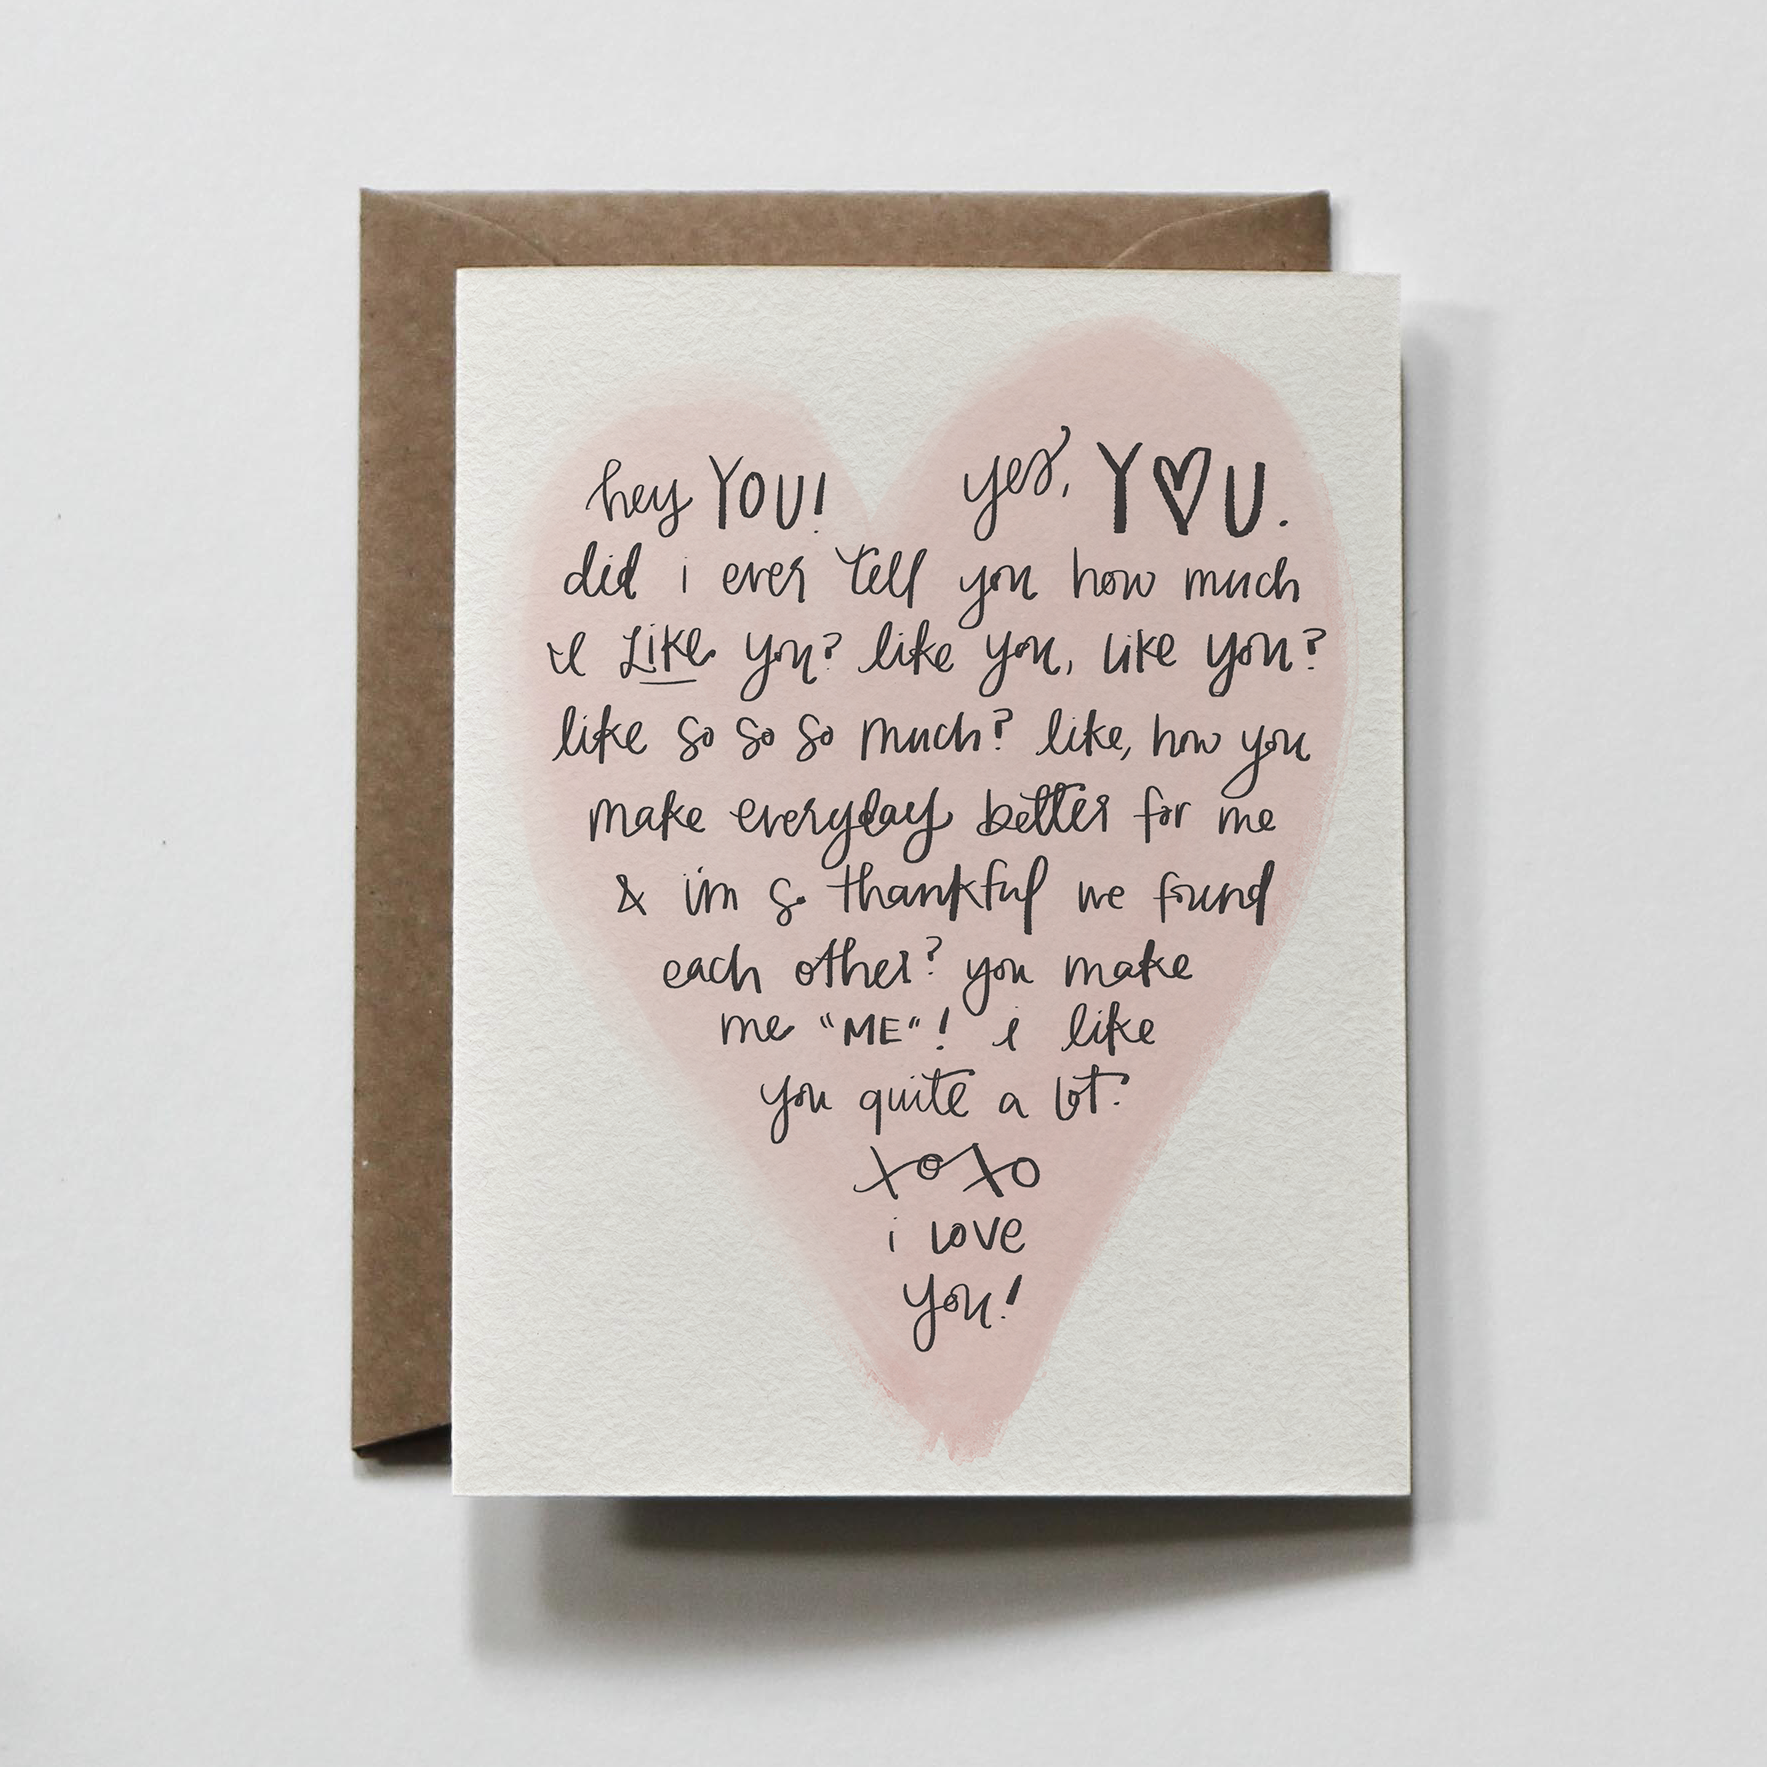 hey YOU! yes, Y♡U.
did i ever tell you how much
i like you? like you, like you?
like so so so much? like, how you
make everyday better for me
& i'm so thankful we found
each other? you make
me "ME"! i like
you quite a lot.
xoxo
i love
you!